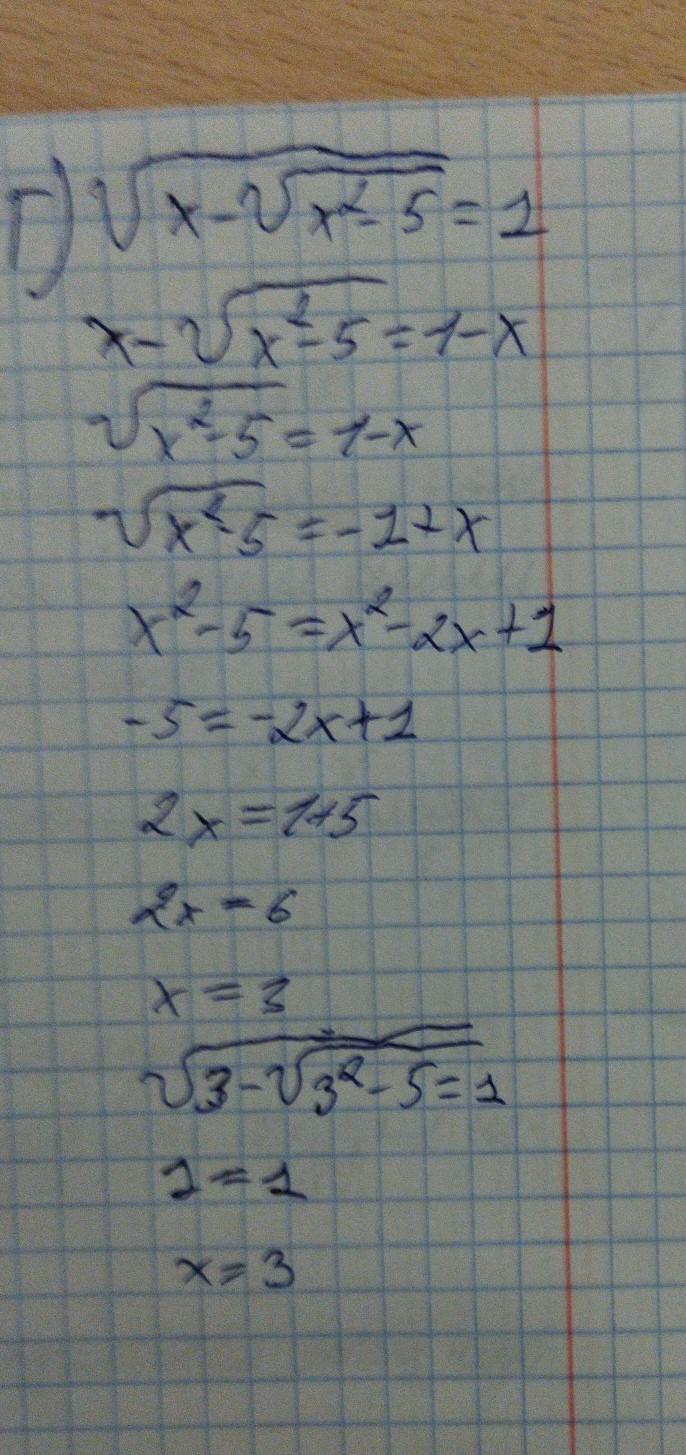 Г) √(x-√(x²-5)) = 1
x-√(x²-5) = 1-x
√(x²-5) = 1-x
√(x²-5) = -1+x
x²-5 = x²-2x+1
-5 = -2x+1
2x = 1+5
2x = 6
x = 3
√(3-√(3²-5)) = 1
1 = 1
x = 3